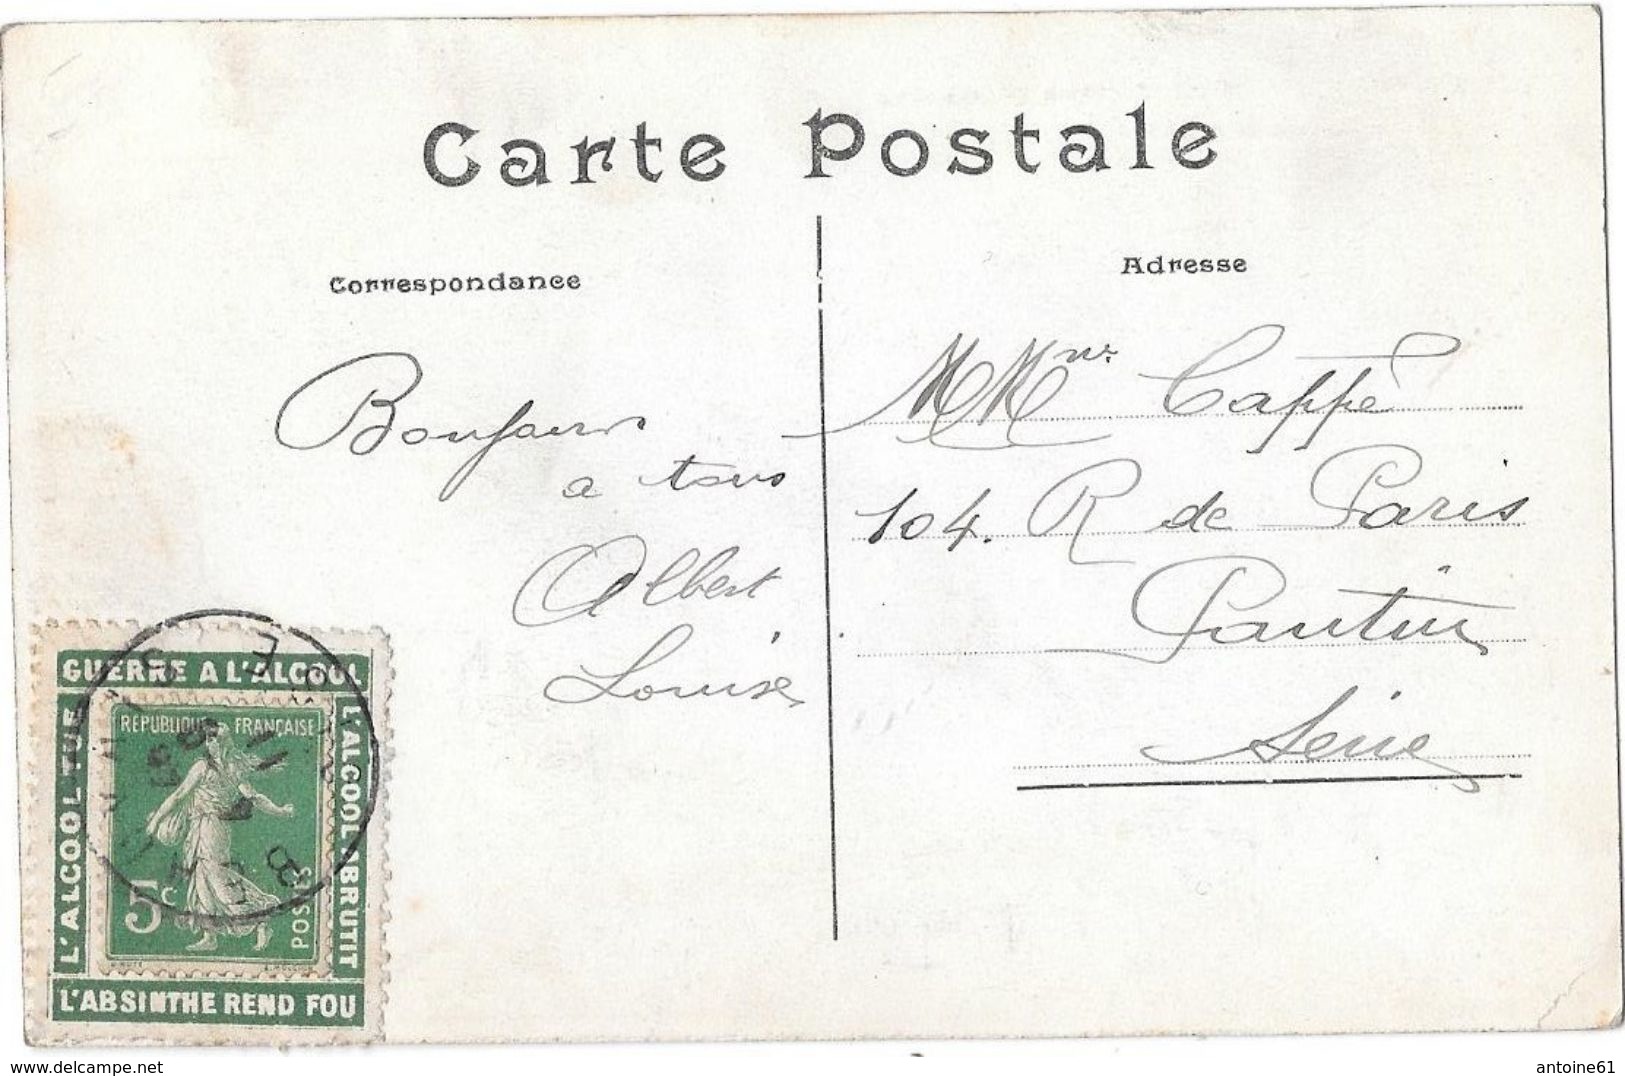 Carte Postale
Correspondance
Adresse
Bonjour
a tous
Albert
Louise
Cappé
104. R de Paris
Pantin
Seine
GUERRE A L'ALCOOL
L'ALCOOL TUE
L'ALCOOL ABRUTIT
L'ABSINTHE REND FOU
REPUBLIQUE FRANÇAISE
5c
POSTES
www.delcampe.net
antoine61